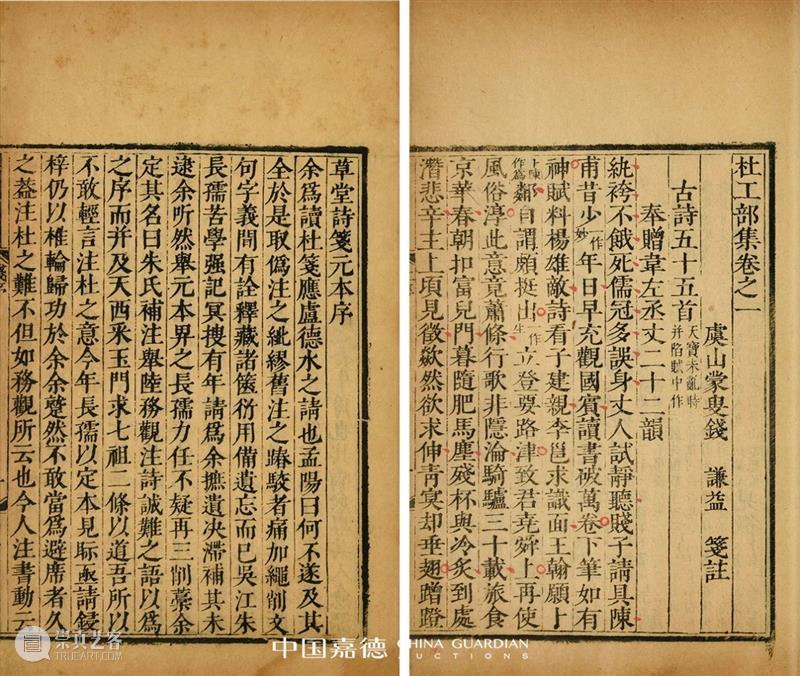 杜工部集卷之一
虞山蒙叟錢 謙益 箋註
古詩五十五首 天寶未亂時并陷賊中作
奉贈韋左丞丈二十二韻
紈袴不餓死儒冠多誤身丈人試靜聽賤子請具陳
甫昔少一作妙年日早充觀國賓讀書破萬卷下筆如有
神賦料楊雄敵詩看子建親李邕求識面王翰願卜
上陳作為鄰自謂頗挺出一作生立登要路津致君堯舜上再使
風俗淳此意竟蕭條行歌非隱淪騎驢三十載旅食
京華春朝扣富兒門暮隨肥馬塵殘杯與冷炙到處
潛悲辛主上頃見徵歘然欲求伸青冥却垂翅蹭蹬
草堂詩箋元本序
余爲讀杜箋應盧德水之請也孟陽曰何不遂及其
全於是取僞注之紕繆舊注之踳駮者痛加繩削文
句字義間有詮釋藏諸篋衍用備遺忘而已吳江朱
長孺苦學强記冥搜有年請爲余摭遺决滯補其未
逮余听然舉元本畀之長孺力任不疑再三削藁余
定其名曰朱氏補注舉陸務觀注詩誠難之語以爲
之序而并及天西采玉門求七祖二條以道吾所以
不敢輕言注杜之意今年長孺以定本見眎亟請鋟
梓仍以椎輪歸功於余余蹵然不敢當爲避席者久
之葢注杜之難不但如務觀所云也今人注書動云
崇真艺客
TRUEART.COM
中国嘉德 CHINA GUARDIAN
AUCTIONS